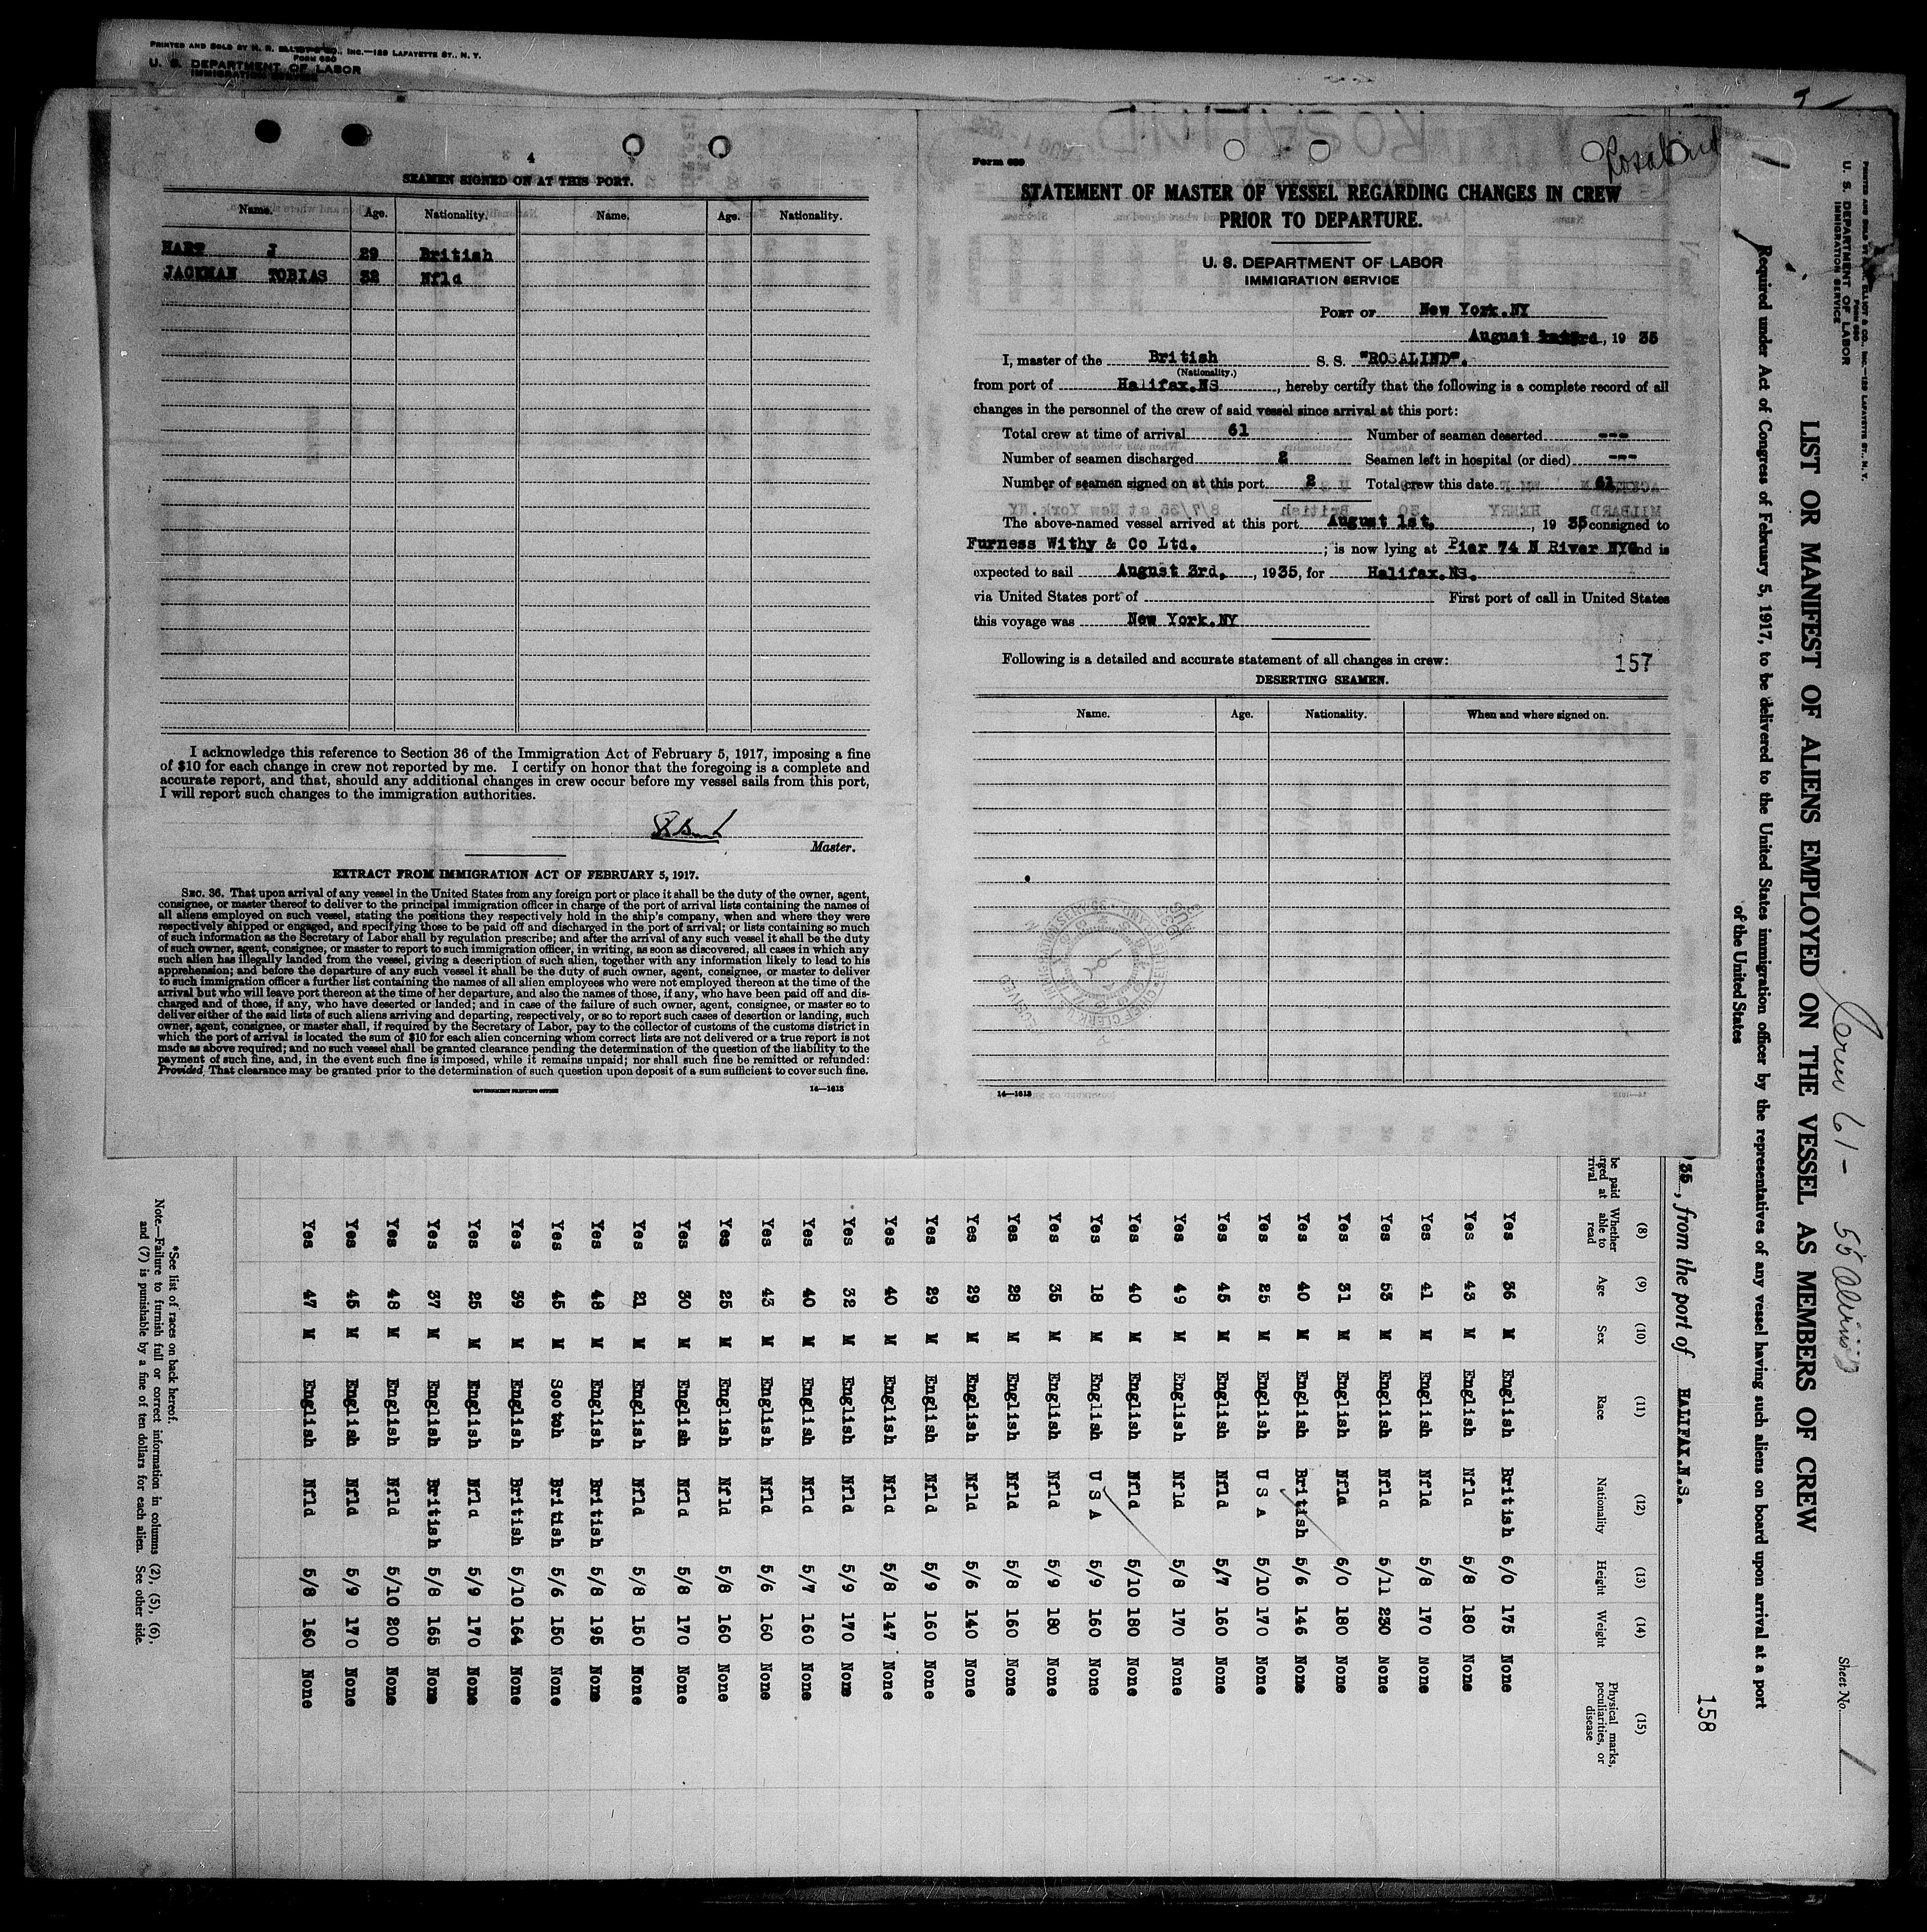 PRINTED AND SOLD BY H. R. ELLIOT & CO., INC.—129 LAFAYETTE ST., N. Y.
FORM 680
U. S. DEPARTMENT OF LABOR
IMMIGRATION SERVICE
4
SEAMEN SIGNED ON AT THIS PORT.
Name. Age. Nationality. Name. Age. Nationality.
HART J 29 British
JACKMAN TOBIAS 32 Nfld
I acknowledge this reference to Section 36 of the Immigration Act of February 5, 1917, imposing a fine
of $10 for each change in crew not reported by me. I certify on honor that the foregoing is a complete and
accurate report, and that, should any additional changes in crew occur before my vessel sails from this port,
I will report such changes to the immigration authorities.
Master.
EXTRACT FROM IMMIGRATION ACT OF FEBRUARY 5, 1917.
SEC. 36. That upon arrival of any vessel in the United States from any foreign port or place it shall be the duty of the owner, agent,
consignee, or master thereof to deliver to the principal immigration officer in charge of the port of arrival lists containing the names of
all aliens employed on such vessel, stating the positions they respectively hold in the ship's company, when and where they were
respectively shipped or engaged, and specifying those to be paid off and discharged in the port of arrival; or lists containing so much
of such information as the Secretary of Labor shall by regulation prescribe; and after the arrival of any such vessel it shall be the duty
of such owner, agent, consignee, or master to report to such immigration officer, in writing, as soon as discovered, all cases in which any
such alien has illegally landed from the vessel, giving a description of such alien, together with any information likely to lead to his
apprehension; and before the departure of any such vessel it shall be the duty of such owner, agent, consignee, or master to deliver
to such immigration officer a further list containing the names of all alien employees who were not employed thereon at the time of the
arrival but who will leave port thereon at the time of her departure, and also the names of those, if any, who have been paid off and dis-
charged and of those, if any, who have deserted or landed; and in case of the failure of such owner, agent, consignee, or master so to
deliver either of the said lists of such aliens arriving and departing, respectively, or so to report such cases of desertion or landing, such
owner, agent, consignee, or master shall, if required by the Secretary of Labor, pay to the collector of customs of the customs district in
which the port of arrival is located the sum of $10 for each alien concerning whom correct lists are not delivered or a true report is not
made as above required; and no such vessel shall be granted clearance pending the determination of the question of the liability to the
payment of such fine, and, in the event such fine is imposed, while it remains unpaid; nor shall such fine be remitted or refunded:
Provided That clearance may be granted prior to the determination of such question upon deposit of a sum sufficient to cover such fine.
GOVERNMENT PRINTING OFFICE 14—1613
Rosalind
Form 689
STATEMENT OF MASTER OF VESSEL REGARDING CHANGES IN CREW
PRIOR TO DEPARTURE.
U. S. DEPARTMENT OF LABOR
IMMIGRATION SERVICE
PORT OF New York.NY
August 3rd, 19 35
I, master of the British S. S. "ROSALIND".
(Nationality.)
from port of Halifax.NS, hereby certify that the following is a complete record of all
changes in the personnel of the crew of said vessel since arrival at this port:
Total crew at time of arrival 61 Number of seamen deserted ---
Number of seamen discharged 2 Seamen left in hospital (or died) ---
Number of seamen signed on at this port 2 Total crew this date 61
The above-named vessel arrived at this port August 1st., 19 35 consigned to
Furness Withy & Co Ltd. ; is now lying at Pier 74 N River NYC and is
expected to sail August 3rd., 1935, for Halifax.NS.
via United States port of First port of call in United States
this voyage was New York.NY
Following is a detailed and accurate statement of all changes in crew: 157
DESERTING SEAMEN.
Name. Age. Nationality. When and where signed on.
14—1613
PRINTED AND SOLD BY H. R. ELLIOT & CO., INC.—129 LAFAYETTE ST., N. Y.
FORM 680
U. S. DEPARTMENT OF LABOR
IMMIGRATION SERVICE
Sheet No. 1
61 - 55 Aliens
LIST OR MANIFEST OF ALIENS EMPLOYED ON THE VESSEL AS MEMBERS OF CREW
Required under Act of Congress of February 5, 1917, to be delivered to the United States immigration officer by the representatives of any vessel having such aliens on board upon arrival at a port
of the United States
35, from the port of HALIFAX.N.S. 158
(8) (9) (10) (11) (12) (13) (14) (15)
Whether able to read Age Sex Race Nationality Height Weight Physical marks, peculiarities, or disease
Yes 36 M English British 6/0 175 None
Yes 43 M English Nfld 5/8 180 None
Yes 41 M English Nfld 5/8 170 None
Yes 53 M English Nfld 5/11 230 None
Yes 31 M English Nfld 6/0 180 None
Yes 40 M English British 5/6 146 None
Yes 25 M English U S A 5/10 170 None
Yes 45 M English Nfld 5/7 160 None
Yes 49 M English Nfld 5/8 170 None
Yes 40 M English Nfld 5/10 180 None
Yes 18 M English U S A 5/9 160 None
Yes 35 M English Nfld 5/9 180 None
Yes 28 M English Nfld 5/8 160 None
Yes 29 M English Nfld 5/6 140 None
Yes 29 M English Nfld 5/9 160 None
Yes 40 M English Nfld 5/8 147 None
Yes 32 M English Nfld 5/9 170 None
Yes 40 M English Nfld 5/7 160 None
Yes 43 M English Nfld 5/6 160 None
Yes 25 M English Nfld 5/8 160 None
Yes 30 M English Nfld 5/8 170 None
Yes 21 M English Nfld 5/8 150 None
Yes 48 M English British 5/8 195 None
Yes 45 M Scotsh British 5/6 150 None
Yes 39 M English British 5/10 164 None
Yes 25 M English Nfld 5/9 170 None
Yes 37 M English British 5/8 165 None
Yes 48 M English Nfld 5/10 200 None
Yes 45 M English Nfld 5/9 170 None
Yes 47 M English Nfld 5/8 160 None
*See list of races on back hereof.
Note.—Failure to furnish full or correct information in columns (2), (5), (6),
and (7) is punishable by a fine of ten dollars for each alien. See other side.